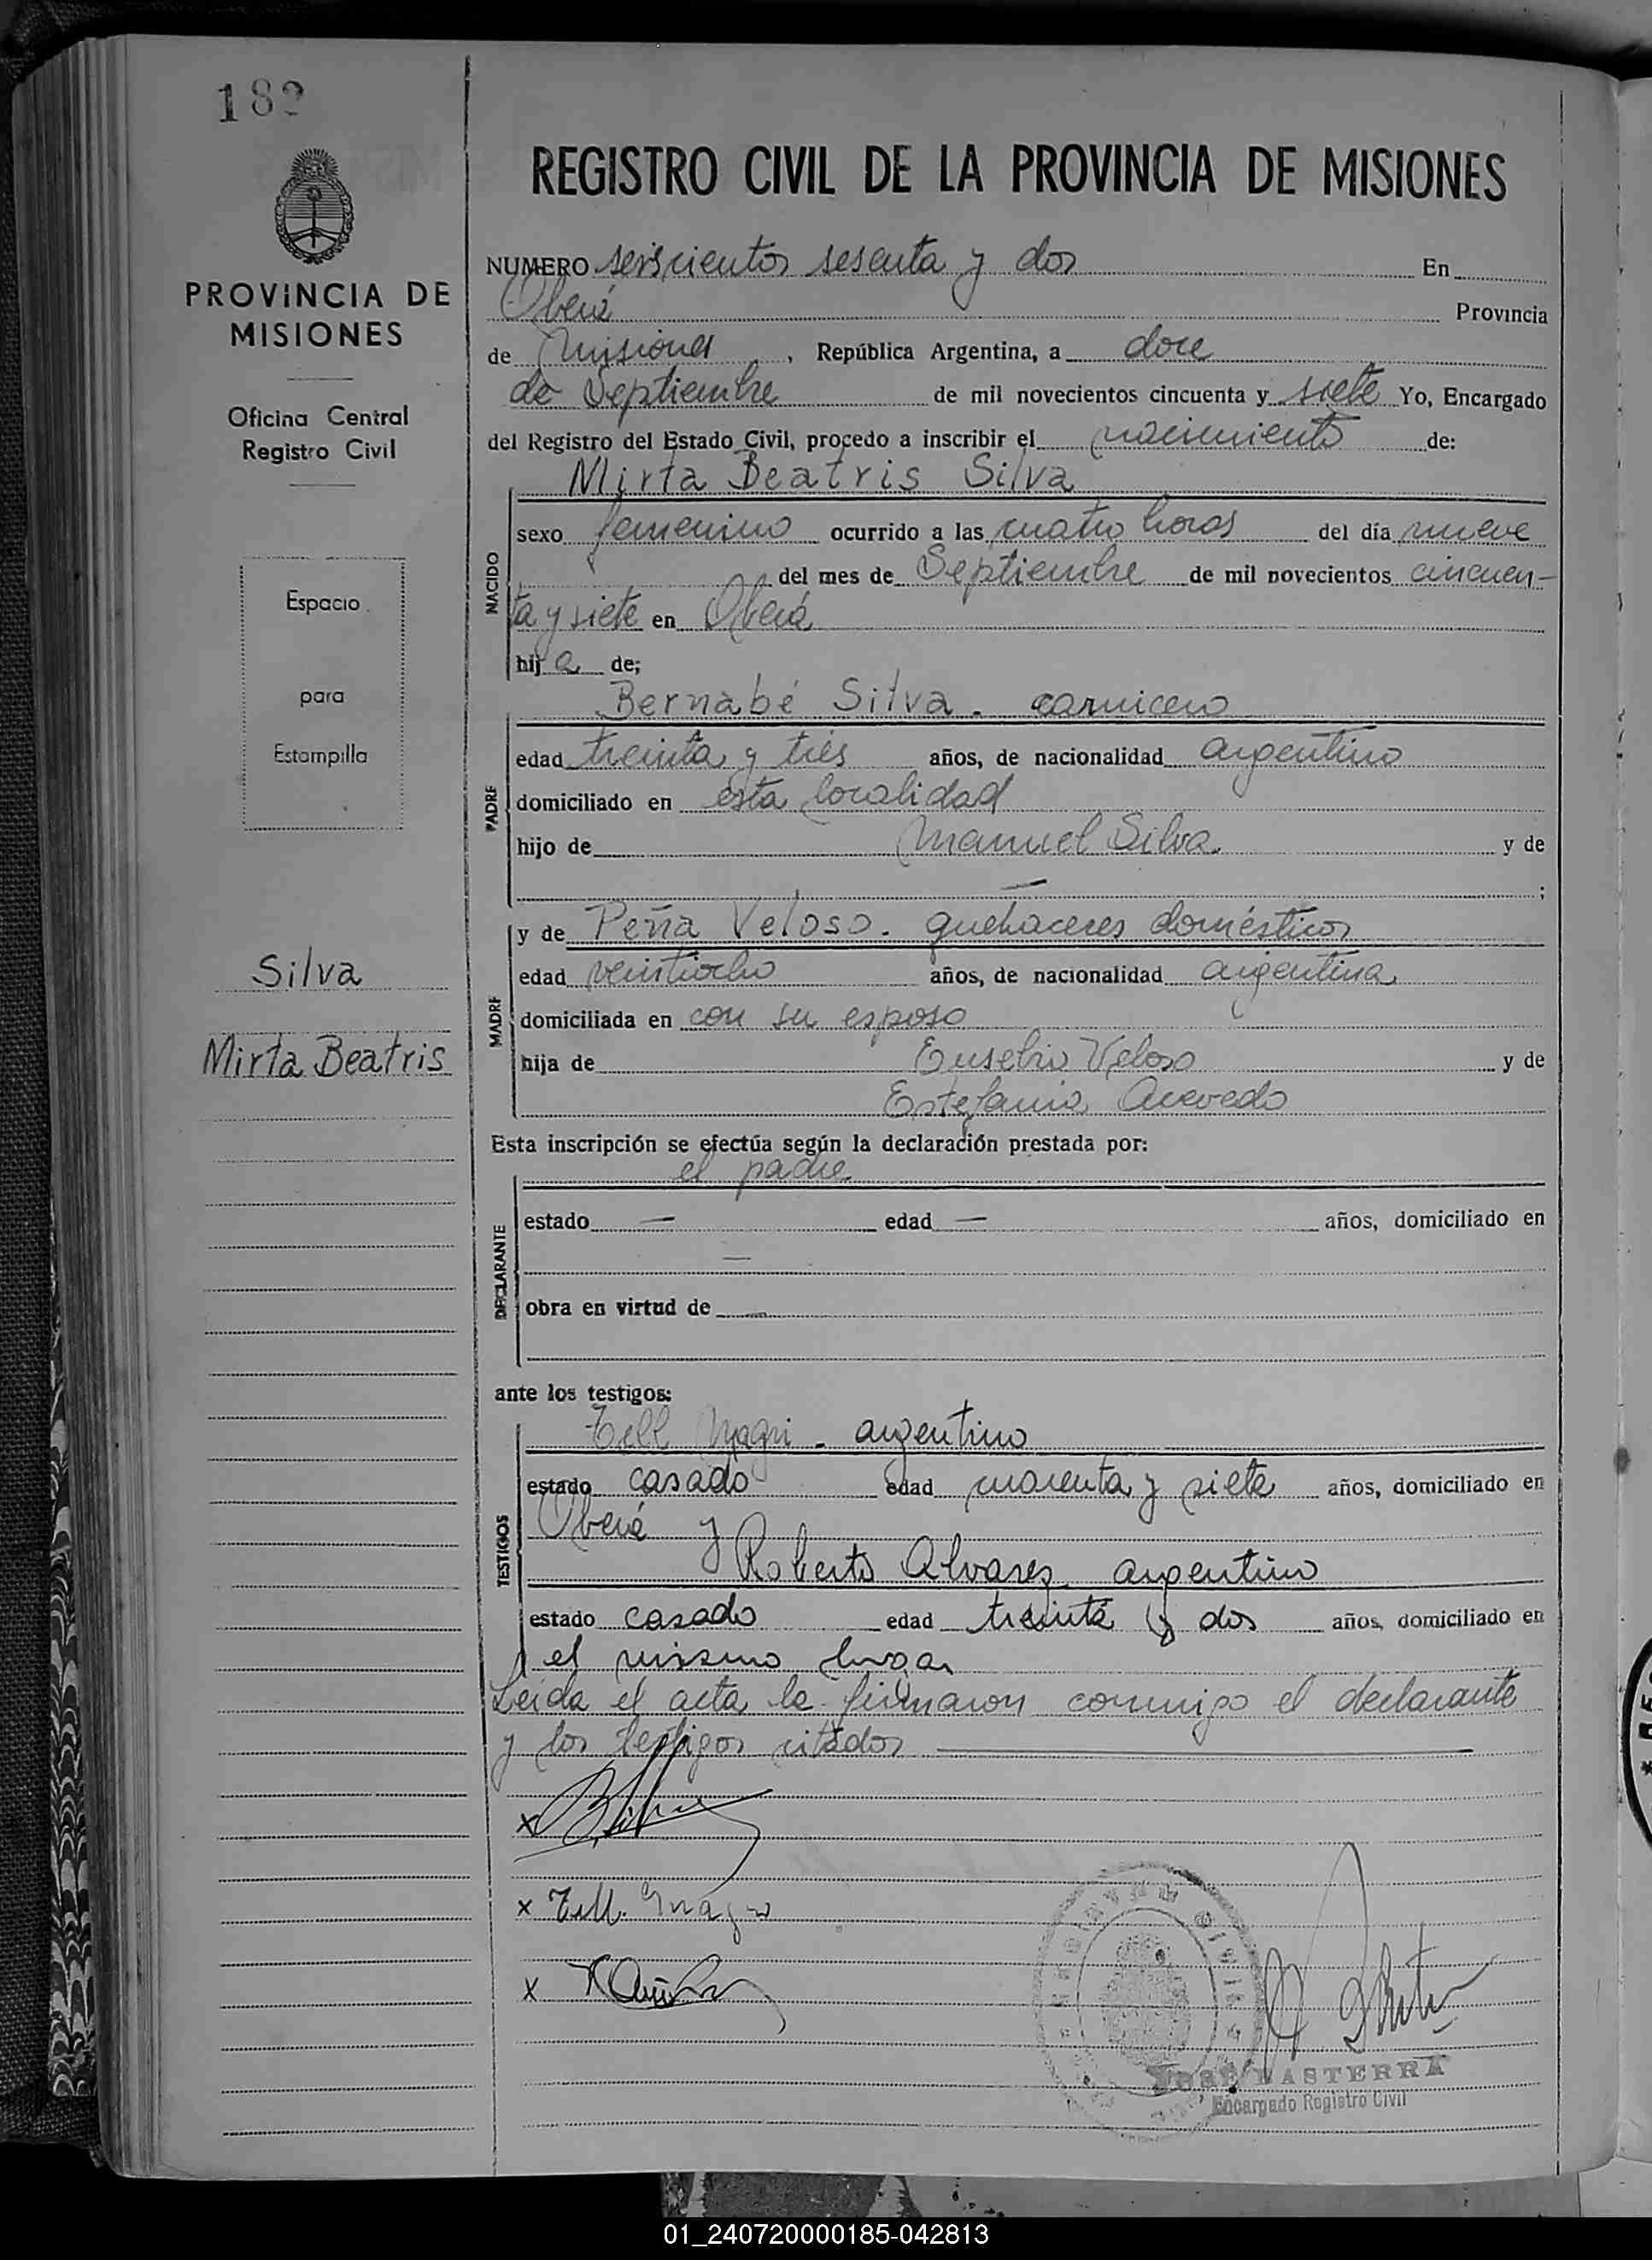 182
PROVINCIA DE
MISIONES
Oficina Central
Registro Civil
Espacio
para
Estampilla
Silva
Mirta Beatris
REGISTRO CIVIL DE LA PROVINCIA DE MISIONES
NUMERO seiscientos sesenta y dos En
Oberá Provincia
de Misiones, República Argentina, a doce
de Septiembre de mil novecientos cincuenta y siete Yo, Encargado
del Registro del Estado Civil, procedo a inscribir el nacimiento de:
Mirta Beatris Silva
NACIDO
sexo femenino ocurrido a las cuatro horas del día nueve
del mes de Septiembre de mil novecientos cincuen-
ta y siete en Oberá
hija de;
Bernabé Silva. carnicero
PADRE
edad treinta y tres años, de nacionalidad argentino
domiciliado en esta localidad
hijo de Manuel Silva y de
— ;
y de Peña Veloso. quehaceres domésticos
MADRE
edad veintiocho años, de nacionalidad argentina
domiciliada en con su esposo
hija de Eusebio Veloso y de
Estefania Acevedo
Esta inscripción se efectúa según la declaración prestada por:
el padre
DECLARANTE
estado — edad — años, domiciliado en
—
obra en virtud de —
ante los testigos:
Tell Magri - argentino
TESTIGOS
estado casado edad cuarenta y siete años, domiciliado en
Oberá y
Roberto Alvarez argentino
estado casado edad treinta y dos años, domiciliado en
el mismo lugar
Leida el acta la firmaron conmigo el declarante
y los testigos citados
x BSilva
x Tell.
x
JOSÉ BASTERRA
Encargado Registro Civil
01_240720000185-042813